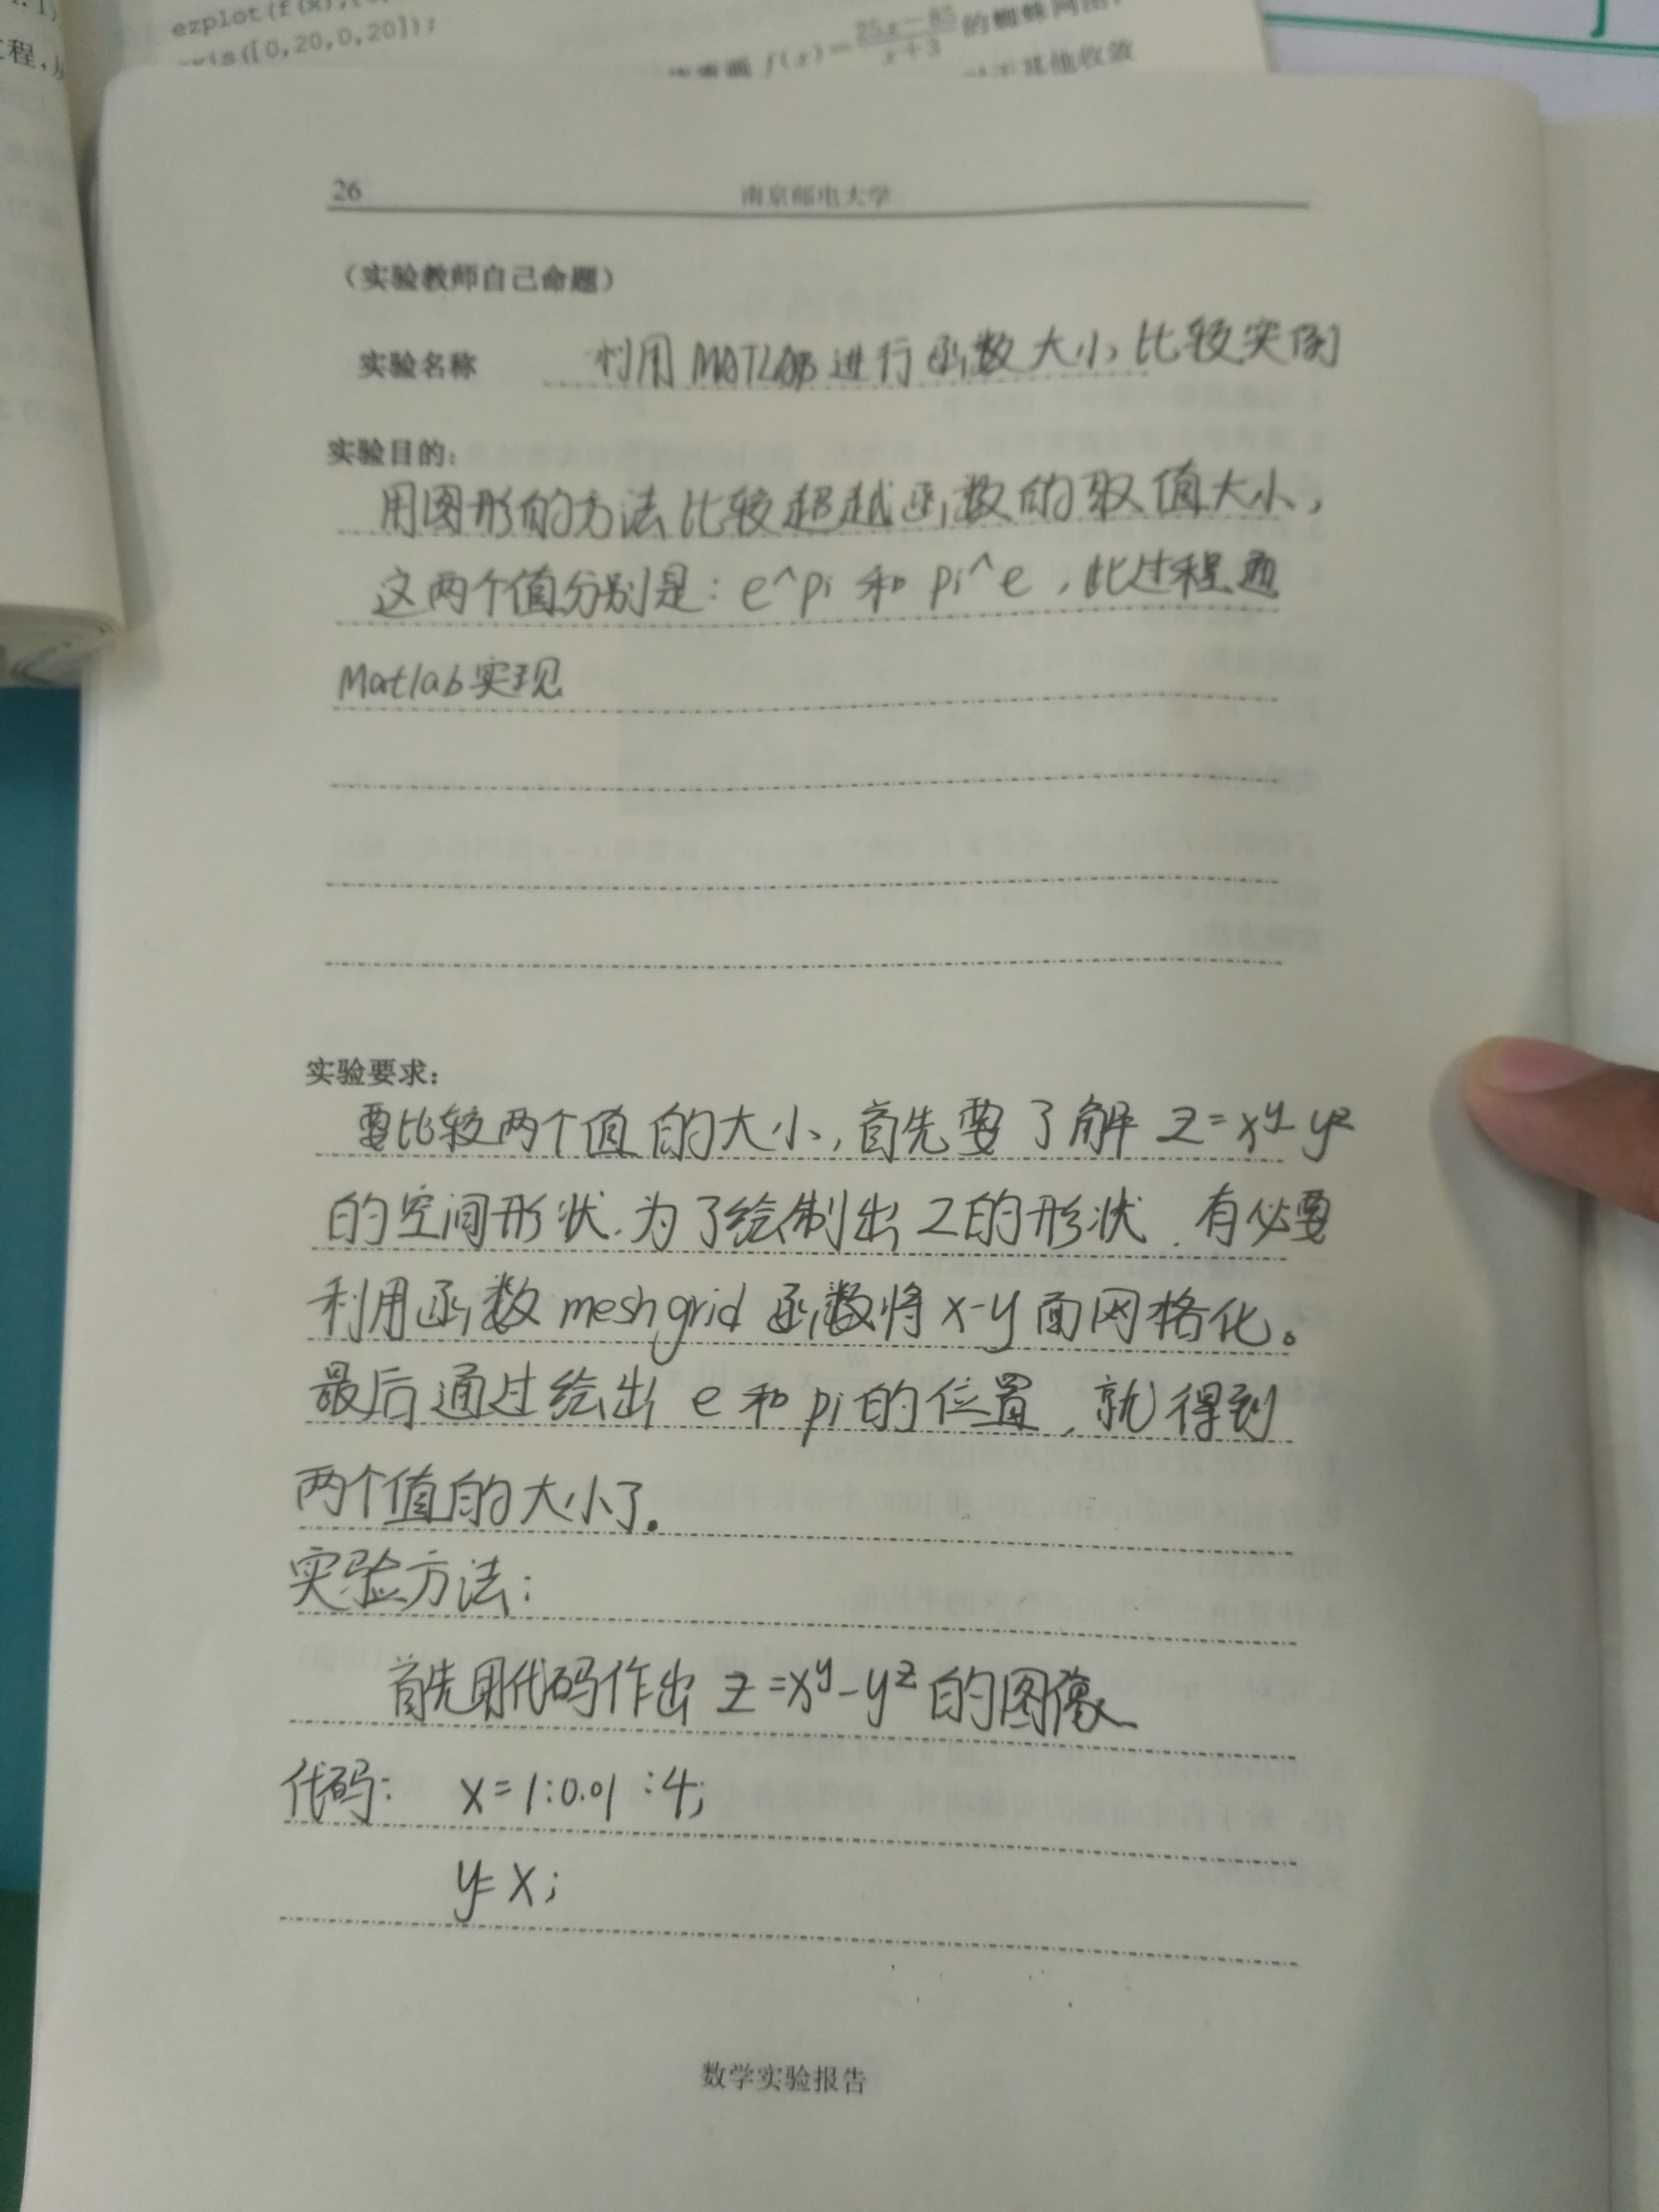 ezplot(f(x),
xis([0,20,0,20]);
程,
f(x)=\frac{25x-85}{x+3}的蜘蛛网图.
其他收敛
26 南京邮电大学
(实验教师自己命题)
实验名称 利用MATLAB进行函数大小比较实例
实验目的:
用图形的方法比较超越函数的取值大小,
这两个值分别是:e^pi 和 pi^e,此过程通
Matlab实现
实验要求:
要比较两个值的大小,首先要了解 z=x^y-y^z
的空间形状.为了绘制出Z的形状.有必要
利用函数meshgrid函数将x-y面网格化。
最后通过绘出 e和pi的位置,就得到
两个值的大小了.
实验方法:
首先用代码作出 z=x^y-y^z的图像
代码: x=1:0.01:4;
y=x;
数学实验报告